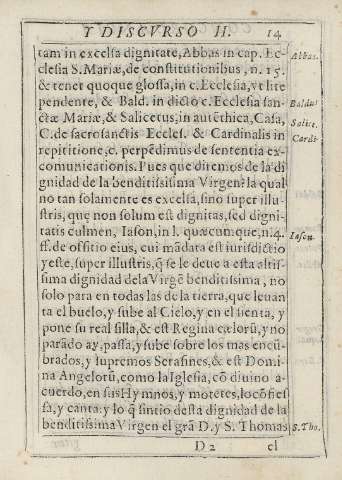 Y DISCVRSO II. 14
tam in excelsa dignitate, Abbas in cap. Ec- Abbas.
clesia S. Mariæ, de constitutionibus, n. 15.
& tenet quoque glossa, in c. Ecclesia, vt lite
pendente, & Bald. in dicto c. Ecclesia san- Baldus
ctæ Mariæ, & Salicetus, in autẽthica, Casa, Salice.
C. de sacrosanctis Eccles. & Cardinalis in Cardi.
repititione, c. perpẽdimus de sententia ex-
comunicationis. Pues que diremos de la di
gnidad de la benditissima Virgen? la qual
no tan solamente es excelsa, sino super illu-
stris, que non solum est dignitas, sed digni-
tatis culmen, Iason, in l. quæcumque, n. 4. Iason.
ff. de offitio eius, cui mãdata est iurisdictio
y este, super illustris, q̃ se le deue a esta altis-
sima dignidad dela Virgẽ benditissima, no
solo para en todas las de la tierra, que leuan
ta el buelo, y sube al Cielo, y en el sienta, y
pone su real silla, & est Regina cælorũ, y no
parãdo ay, passa, y sube sobre los mas encũ-
brados, y supremos Serafines, & est Domi-
na Angelorũ, como la Iglesia, cõ diuino a-
cuerdo, en sus Hymnos, y motetes, lo cõfies
sa, y canta: y lo q̃ sintio desta dignidad de la
benditissima Virgen el grã D. y S. Thomas S. Tho.
D 2 el